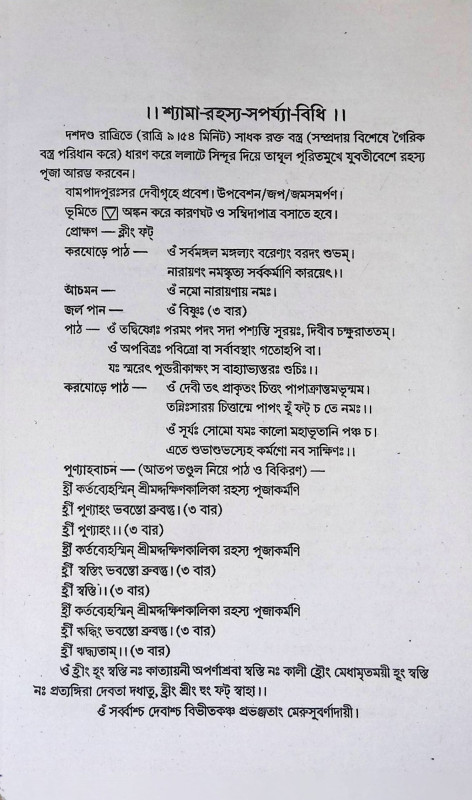 ।। শ্যামা-রহস্য-সপর্য্যা-বিধি ।।
দশদণ্ড রাত্রিতে (রাত্রি ৯।৫৪ মিনিট) সাধক রক্ত বস্ত্র (সম্প্রদায় বিশেষে গৈরিক
বস্ত্র পরিধান করে) ধারণ করে ললাটে সিন্দূর দিয়ে তাম্বূল পূরিতমুখে যুবতীবেশে রহস্য
পূজা আরম্ভ করবেন।
বামপাদপুরঃসর দেবীগৃহে প্রবেশ। উপবেশন/জপ/জমসমর্পণ।
ভূমিতে অঙ্কন করে কারণঘট ও সম্বিদাপাত্র বসাতে হবে।
প্রোক্ষণ — ক্লীং ফট্
করযোড়ে পাঠ — ওঁ সর্বমঙ্গল মঙ্গল্যং বরেণ্যং বরদং শুভম্।
নারায়ণং নমস্কৃত্য সর্বকর্মাণি কারয়েৎ।।
আচমন — ওঁ নমো নারায়ণায় নমঃ।
জল পান — ওঁ বিষ্ণুঃ (৩ বার)
পাঠ — ওঁ তদ্বিষ্ণোঃ পরমং পদং সদা পশ্যন্তি সূরয়ঃ, দিবীব চক্ষুরাততম্।
ওঁ অপবিত্রঃ পবিত্রো বা সর্বাবস্থাং গতোহপি বা।
যঃ স্মরেৎ পুন্ডরীকাক্ষং স বাহ্যাভ্যন্তরঃ শুচিঃ।।
করযোড়ে পাঠ — ওঁ দেবী তৎ প্রাকৃতং চিত্তং পাপাক্রান্তমভূন্মম।
তন্নিঃসারয় চিত্তান্মে পাপং হূঁ ফট্ চ তে নমঃ।।
ওঁ সূর্যঃ সোমো যমঃ কালো মহাভূতানি পঞ্চ চ।
এতে শুভাশুভস্যেহ কর্মণো নব সাক্ষিণঃ।।
পূণ্যাহবাচন — (আতপ তণ্ডুল নিয়ে পাঠ ও বিকিরণ) —
হ্রীঁ কর্তব্যেহস্মিন্ শ্রীমদ্দক্ষিণকালিকা রহস্য পূজাকর্মণি
হ্রীঁ পূণ্যাহং ভবন্তো ব্রুবন্তু। (৩ বার)
হ্রীঁ পূণ্যাহং।। (৩ বার)
হ্রীঁ কর্তব্যেহস্মিন্ শ্রীমদ্দক্ষিণকালিকা রহস্য পূজাকর্মণি
হ্রীঁ স্বস্তিং ভবন্তো ব্রুবন্তু। (৩ বার)
হ্রীঁ স্বস্তি।। (৩ বার)
হ্রীঁ কর্তব্যেহস্মিন্ শ্রীমদ্দক্ষিণকালিকা রহস্য পূজাকর্মণি
হ্রীঁ ঋদ্ধিং ভবন্তো ব্রুবন্তু। (৩ বার)
হ্রীঁ ঋদ্ধ্যতাম্।। (৩ বার)
ওঁ হ্রীং হূং স্বস্তি নঃ কাত্যায়নী অপর্ণাশ্রবা স্বস্তি নঃ কালী হ্রৌং মেধামৃতময়ী হূং স্বস্তি
নঃ প্রত্যঙ্গিরা দেবতা দধাতু, হ্রীং শ্রীং হুং ফট্ স্বাহা।।
ওঁ সর্ব্বাশ্চ দেবাশ্চ বিভীতকঞ্চ প্রভঞ্জতাং মেরুসুবর্ণাদায়ী।